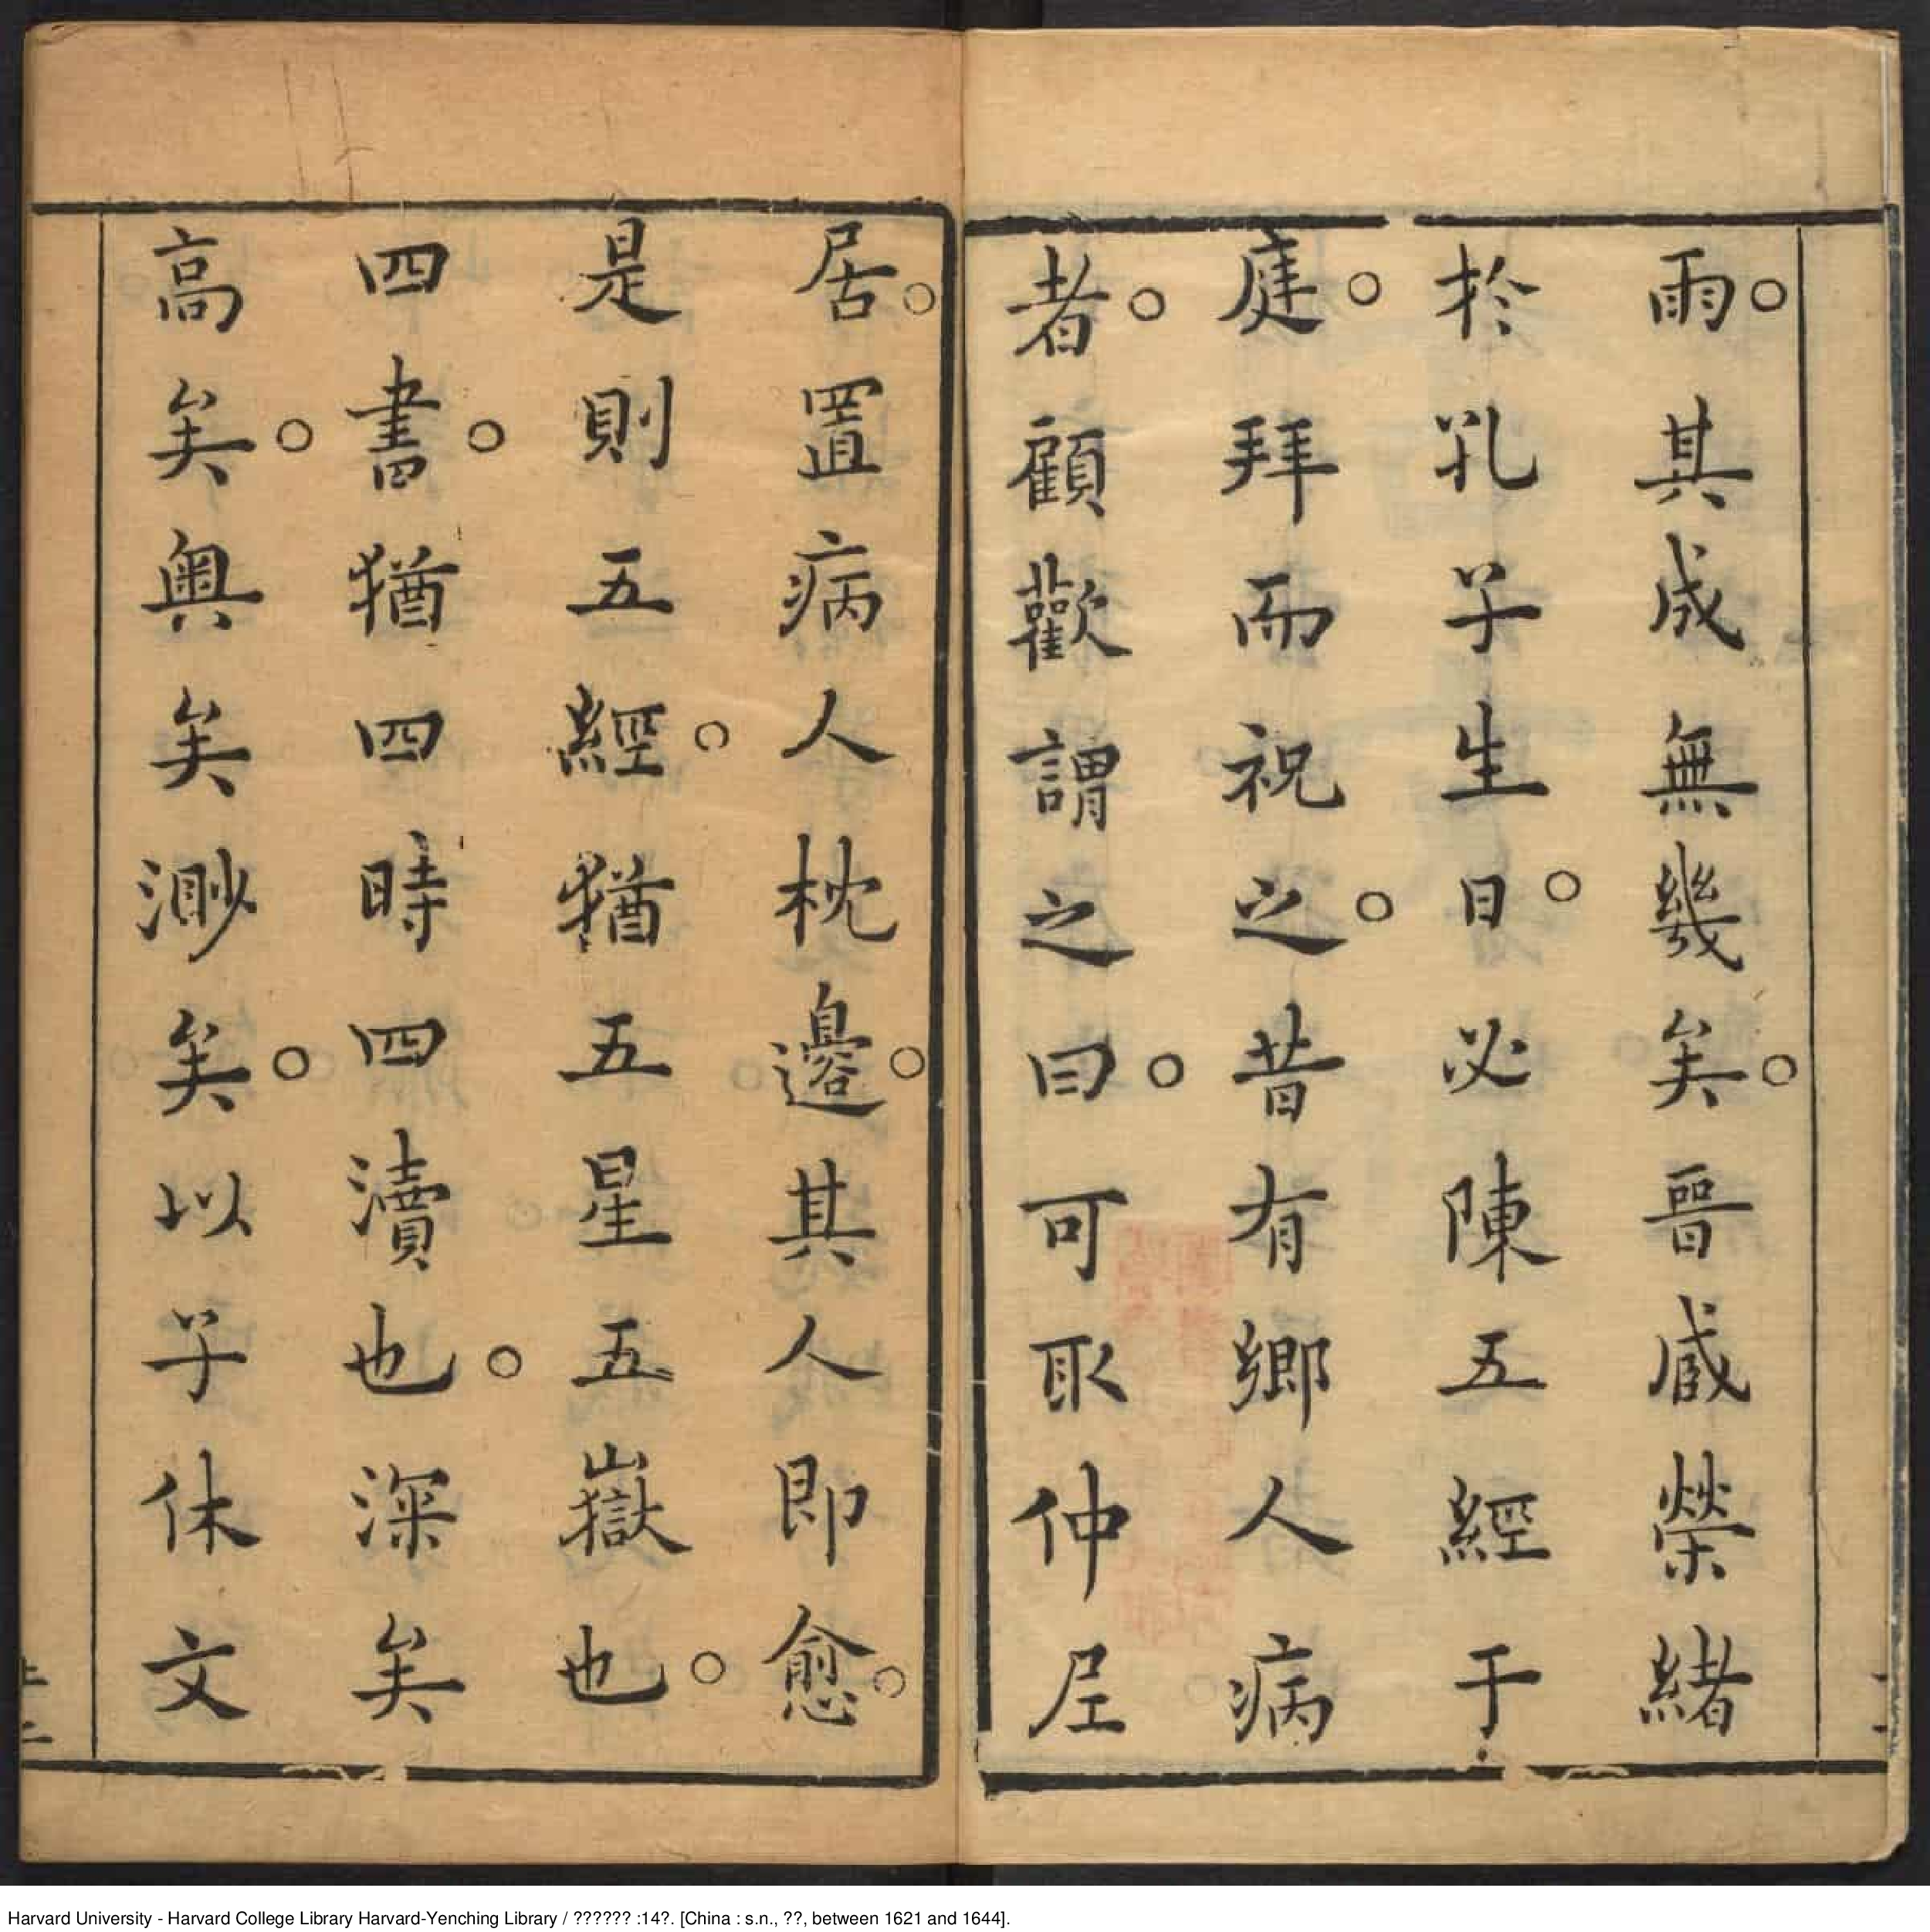 雨。其成無幾矣。晉臧榮緒
於孔子生日。必陳五經于
庭。拜而祝之。昔有鄉人病
者。顧歡謂之曰。可取仲尼
居。置病人枕邊。其人即愈。
是則五經。猶五星五嶽也。
四書。猶四時四瀆也。深矣
高矣。奧矣渺矣。以子休文
Harvard University - Harvard College Library Harvard-Yenching Library / ?????? :14?. [China : s.n., ??, between 1621 and 1644].